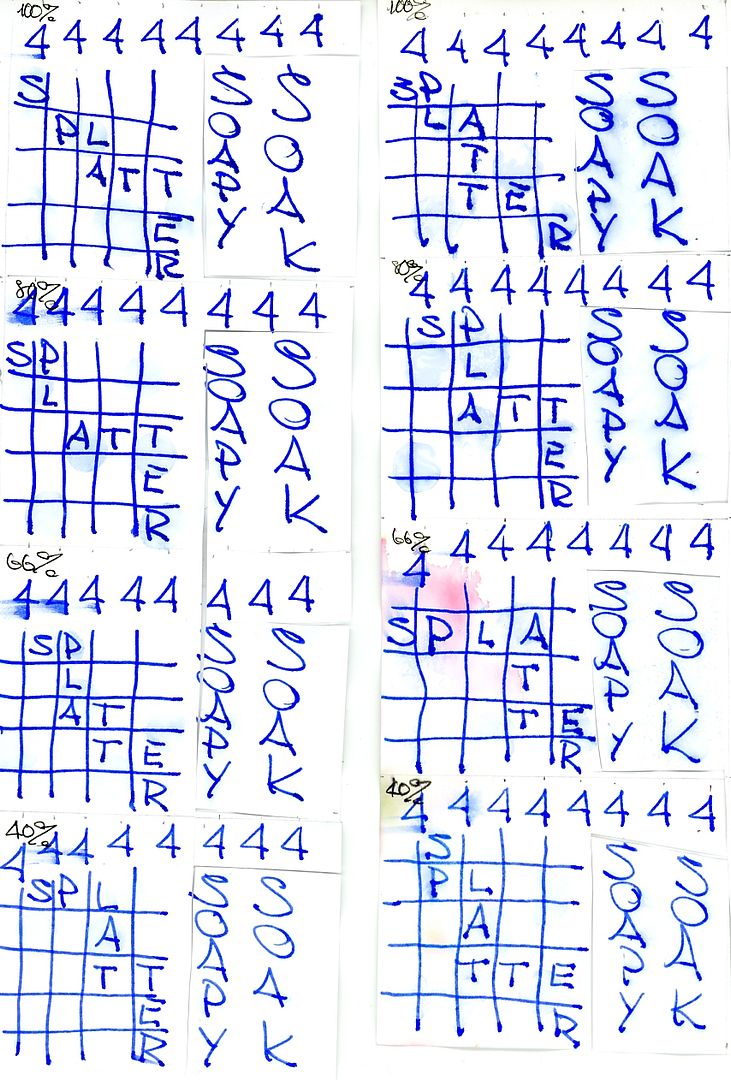 100%
4 4 4 4 4 4 4 4
S
P L
A T T
E
R
SOAPY
SOAK
100%
4 4 4 4 4 4 4 4
S P
L A
T
T E
R
SOAPY
SOAK
80%
4 4 4 4 4 4 4 4
S P
L
A T T
E
R
SOAPY
SOAK
80%
4 4 4 4 4 4 4 4
S P
L
A T T
E
R
SOAPY
SOAK
66%
4 4 4 4 4 4 4 4
S P
L
A T
T E
R
SOAPY
SOAK
66%
4 4 4 4 4 4 4 4
S P L A
T
T E
R
SOAPY
SOAK
40%
4 4 4 4 4 4 4 4
S P L
A
T T
E
R
SOAPY
SOAK
40%
4 4 4 4 4 4 4 4
S
P L
A
T T E
R
SOAPY
SOAK